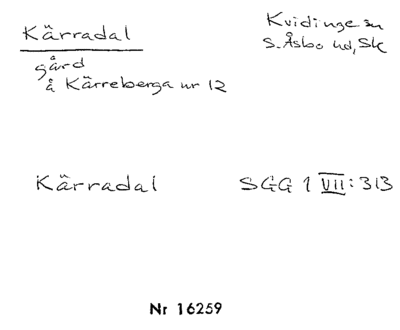 Kärradal
Kvidinge sn
S. Åsbo hd, Sk
gård
å Kärreberga nr 12
Kärradal
SGG 1 VII: 313
Nr 16259